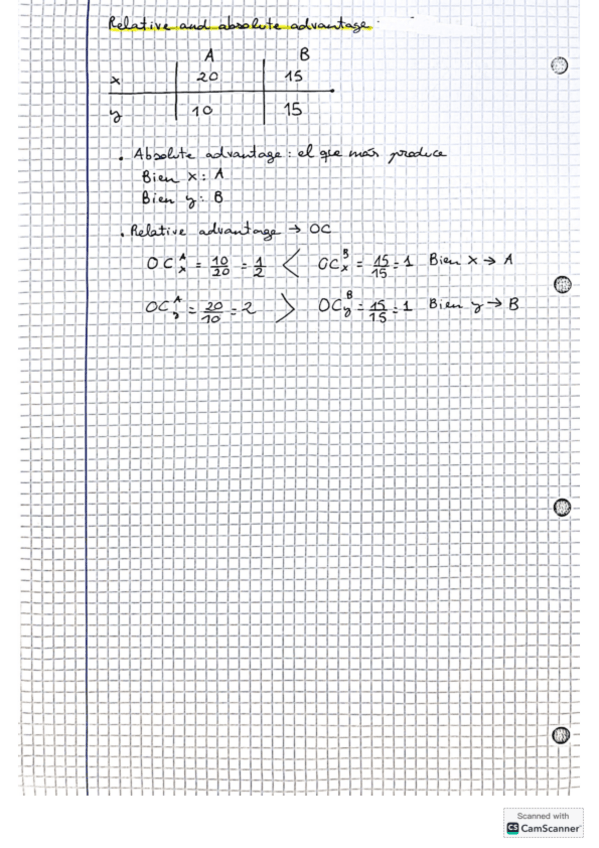 Relative and absolute advantage:
A B
x 20 15
y 10 15
. Absolute advantage: el que más produce
Bien x: A
Bien y: B
. Relative advantage → OC
OC_x^A = 10/20 = 1/2 < OC_x^B = 15/15 = 1 Bien x → A
OC_y^A = 20/10 = 2 > OC_y^B = 15/15 = 1 Bien y → B
Scanned with
CS CamScanner